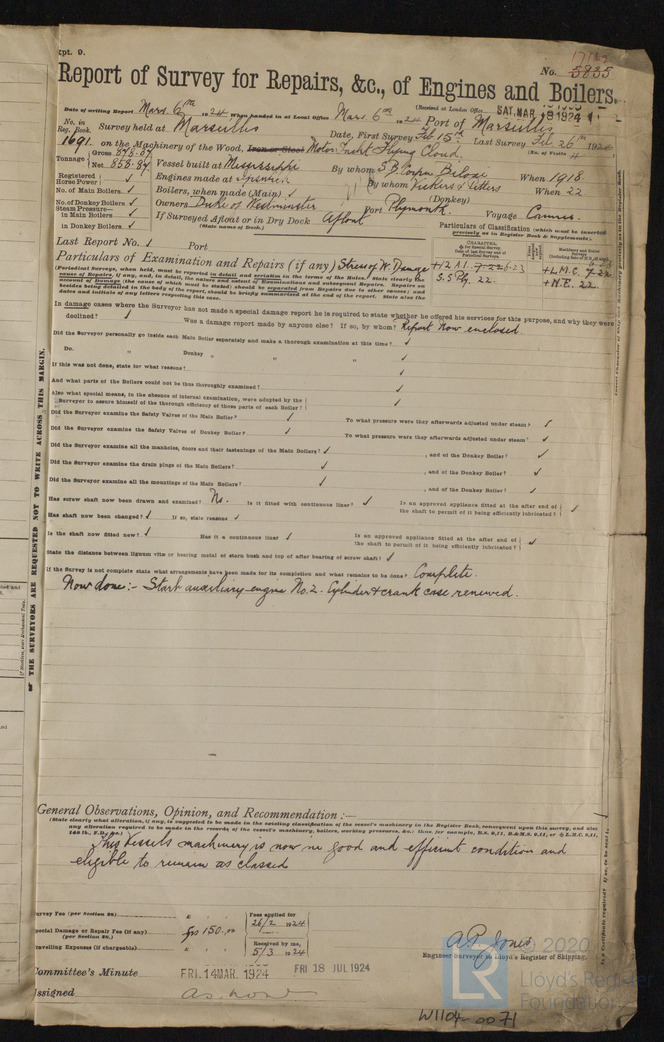 Rpt. 9.
No. 5835
Report of Survey for Repairs, &c., of Engines and Boilers.
(Received at London Office SAT. MAR 8 1924
Date of writing Report Mars. 6th 1924 When handed in at Local Office Mars. 6th 1924 Port of Marseilles
No. in Reg. Book. Survey held at Marseilles Date, First Survey Feb 15th Last Survey Feb. 26th 1924
(No. of Visits 4
1691. on the Machinery of the Wood, Iron or Steel Motor Yacht Flying Cloud.
Tonnage Gross
Net
Vessel built at Mississippi By whom When 1918.
Registered Horse Power
Engines made at Ipswich By whom Vickers & Petters When 22
No. of Main Boilers ✓ Boilers, when made (Main) ✓ (Donkey)
No. of Donkey Boilers ✓ Owners Duke of Westminster Port Plymouth. Voyage Cannes.
Steam Pressure—
in Main Boilers ✓
in Donkey Boilers ✓
If Surveyed Afloat or in Dry Dock Afloat
(State name of Dock.)
Particulars of Classification (which must be inserted
precisely as in Register Book & Supplements).
Last Report No. ✓ Port
Particulars of Examination and Repairs (if any) Stress of W. Damage
(Periodical Surveys, when held, must be reported in detail and seriatim in the terms of the Rules. State clearly the
cause of Repairs, if any, and, in detail, the nature and extent of Examinations and subsequent Repairs. Repairs on
account of Damage (the cause of which must be stated) should be separated from Repairs due to other causes; and
besides being detailed in the body of the report, should be briefly summarized at the end of the report. State also the
dates and initials of any letters respecting this case.
CHARACTER.
S.S Ply. 22.
+L.M.C. 7.22
+N.E. 22.
In damage cases where the Surveyor has not made a special damage report he is required to state whether he offered his services for this purpose, and why they were
declined? ✓ Was a damage report made by anyone else? If so, by whom? Report now enclosed
Did the Surveyor personally go inside each Main Boiler separately and make a thorough examination at this time? ✓
Do. " Donkey " " " ✓
If this was not done, state for what reasons? ✓
And what parts of the Boilers could not be thus thoroughly examined? ✓
Also what special means, in the absence of internal examination, were adopted by the
Surveyor to assure himself of the thorough efficiency of those parts of each Boiler? ✓
Did the Surveyor examine the Safety Valves of the Main Boiler? ✓ To what pressure were they afterwards adjusted under steam? ✓
Did the Surveyor examine the Safety Valves of Donkey Boiler? ✓ To what pressure were they afterwards adjusted under steam? ✓
Did the Surveyor examine all the manholes, doors and their fastenings of the Main Boilers? ✓ , and of the Donkey Boiler? ✓
Did the Surveyor examine the drain plugs of the Main Boilers? ✓ , and of the Donkey Boiler? ✓
Did the Surveyor examine all the mountings of the Main Boilers? ✓ , and of the Donkey Boiler? ✓
Has screw shaft now been drawn and examined? No. Is it fitted with continuous liner? ✓ Is an approved appliance fitted at the after end of
the shaft to permit of it being efficiently lubricated? ✓
Has shaft now been changed? ✓ If so, state reasons ✓
Is the shaft now fitted new? ✓ Has it a continuous liner ✓ Is an approved appliance fitted at the after end of
the shaft to permit of it being efficiently lubricated? ✓
State the distance between lignum vitæ or bearing metal of stern bush and top of after bearing of screw shaft? ✓
If the Survey is not complete state what arrangements have been made for its completion and what remains to be done? Complete.
Now done:- Starb auxiliary engine No. 2. Cylinder & crank case renewed.
General Observations, Opinion, and Recommendation:—
(State clearly what alteration, if any, is suggested to be made in the existing classification of the vessel's machinery in the Register Book, consequent upon this survey, and also
any alteration required to be made in the records of the vessel's machinery, boilers, working pressures, &c.: thus, for example, B.S. 9,11, B.&M.S. 9,11, or L.M.C. 9,11,
This Vessels machinery is now in good and efficient condition and
eligible to remain as classed
Survey Fee (per Section 28)
Fees applied for
26/2 1924
Special Damage or Repair Fee (if any)
(per Section 28.)
frs 150.00
Travelling Expenses (if chargeable)
Received by me,
5/3 1924
A.P. Jones
Engineer Surveyor to Lloyd's Register of Shipping.
Committee's Minute FRI. 14 MAR. 1924 FRI 18 JUL 1924
Assigned as now
THE SURVEYORS ARE REQUESTED NOT TO WRITE ACROSS THIS MARGIN.
© 2020
LR Lloyd's Register
Foundation
W1104-0071